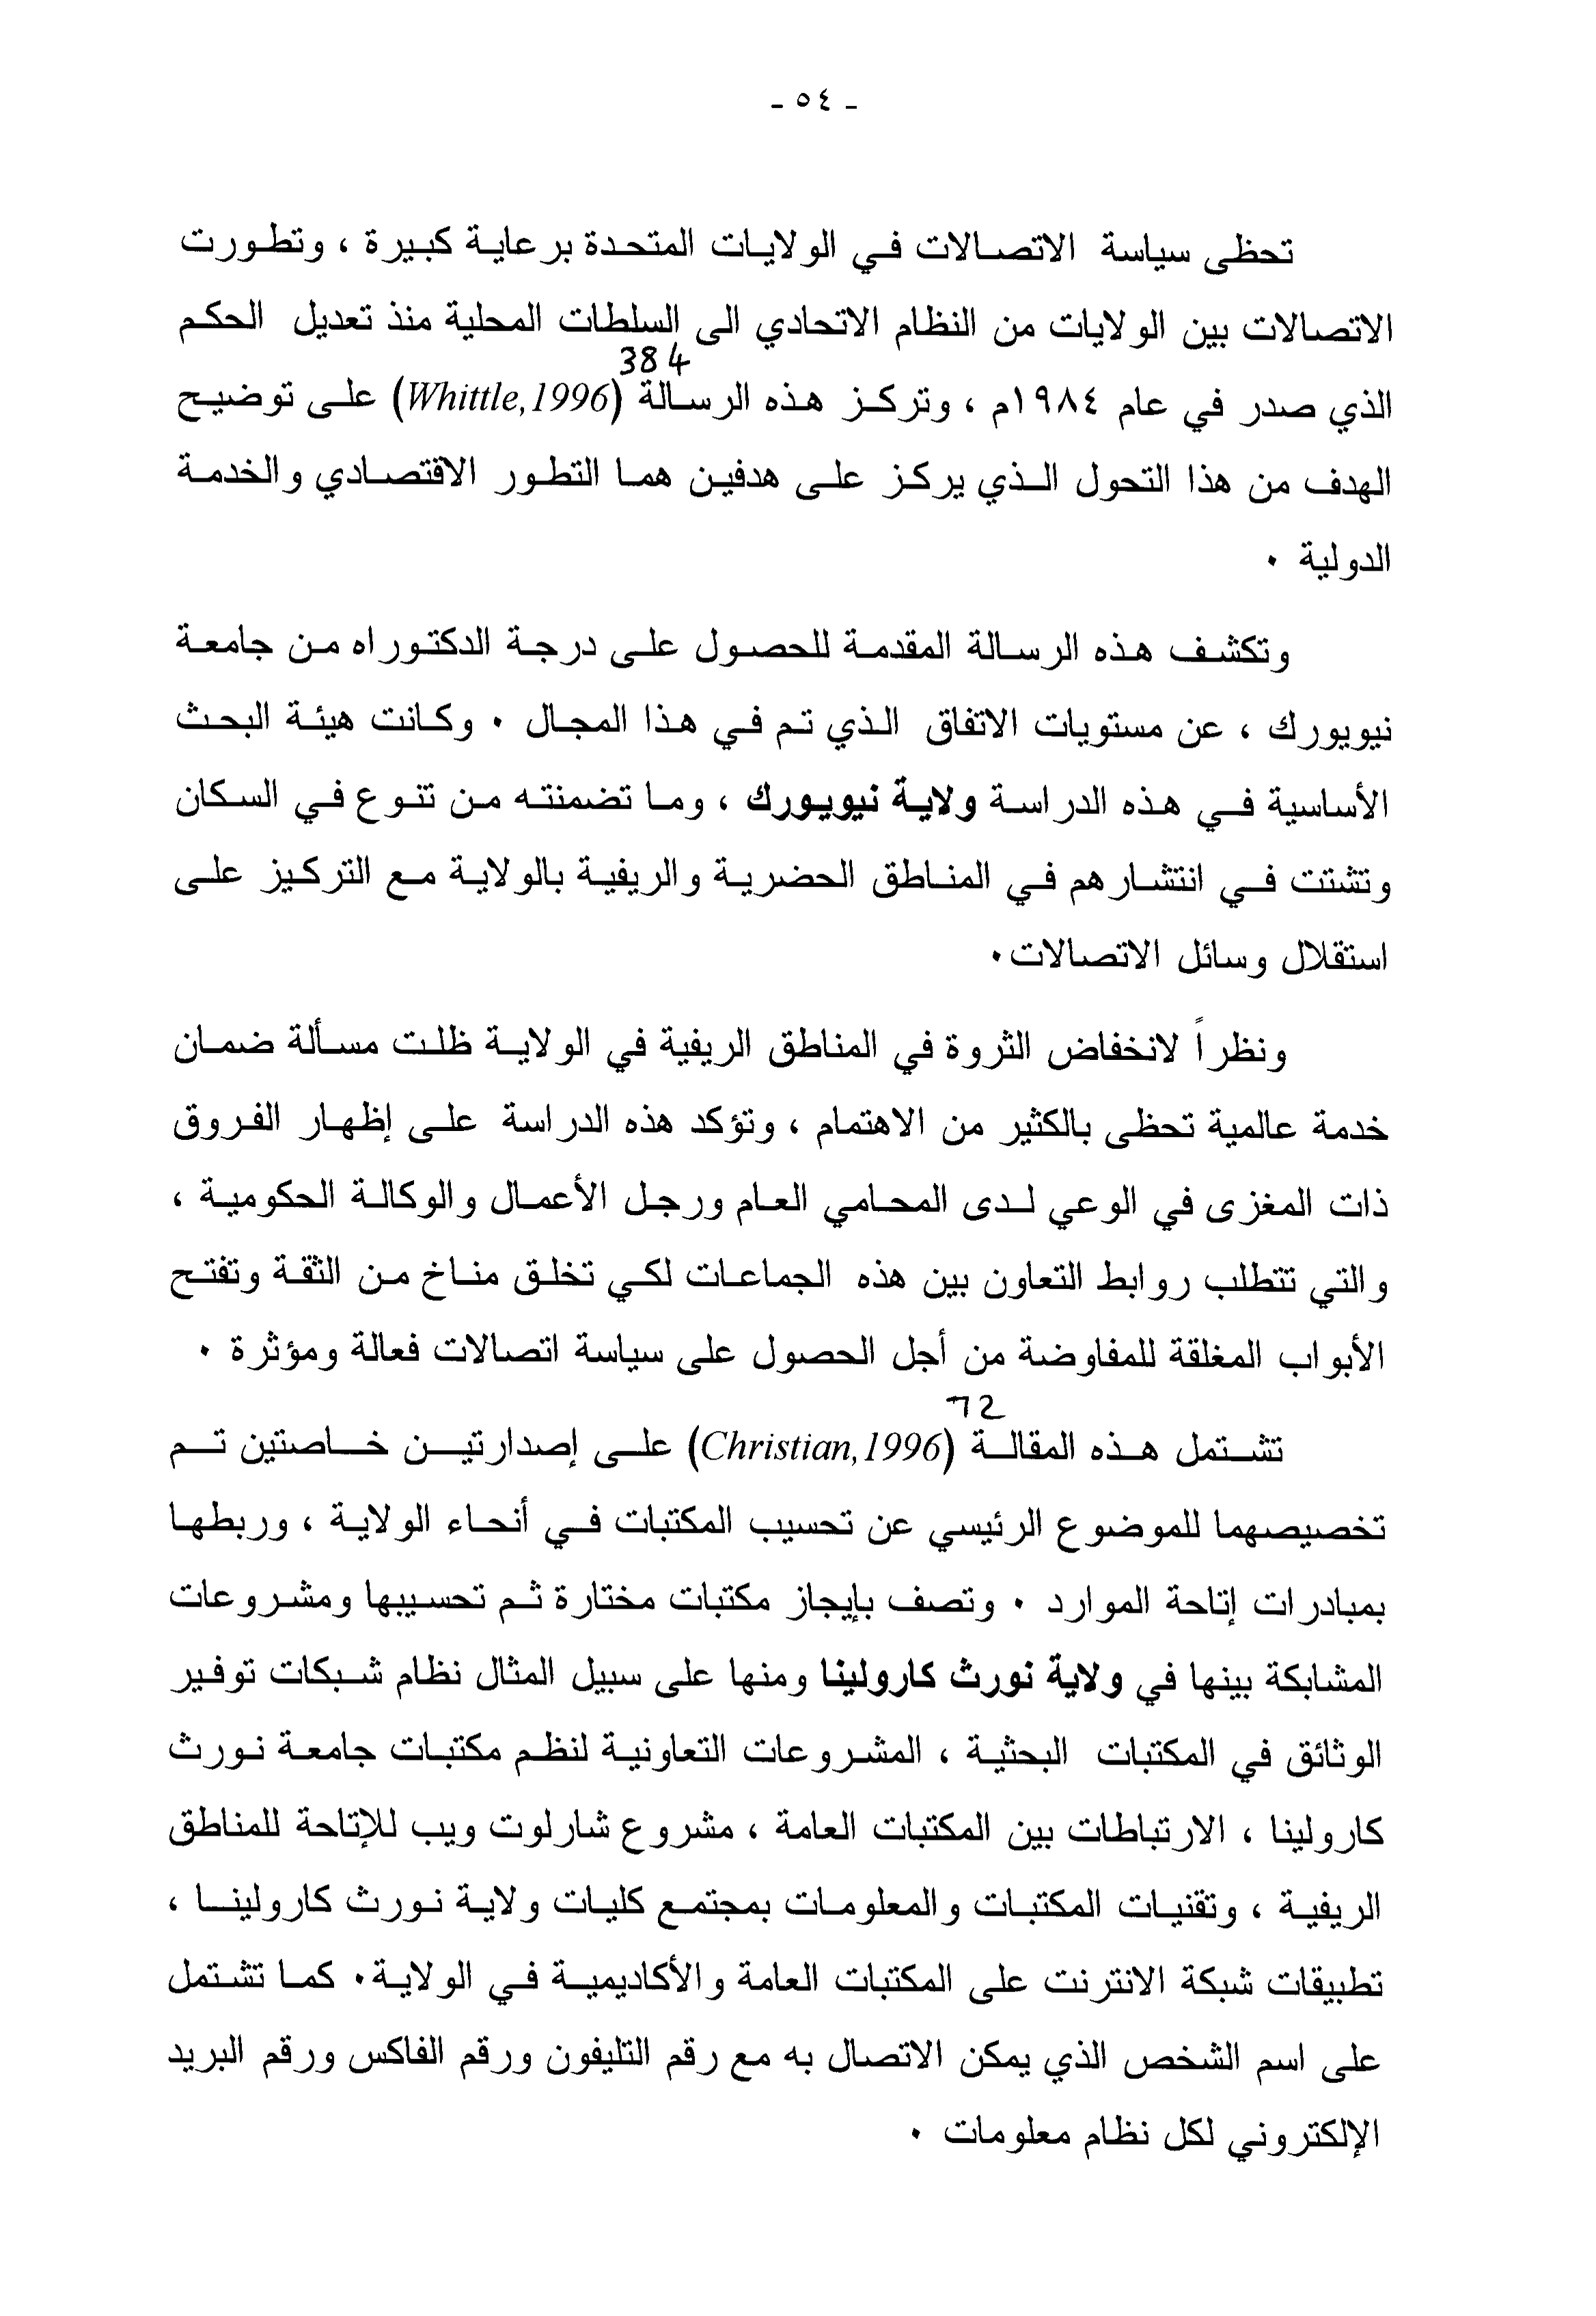 - ٥٤ -
تحظى سياسة الاتصالات في الولايات المتحدة برعاية كبيرة ، وتطورت
الاتصالات بين الولايات من النظام الاتحادي الى السلطات المحلية منذ تعديل الحكم
384
الذي صدر في عام ١٩٨٤م ، وتركز هذه الرسالة (Whittle,1996) على توضيح
الهدف من هذا التحول الذي يركز على هدفين هما التطور الاقتصادي والخدمة
الدولية ٠
وتكشف هذه الرسالة المقدمة للحصول على درجة الدكتوراه من جامعة
نيويورك ، عن مستويات الاتفاق الذي تم في هذا المجال ٠ وكانت هيئة البحث
الأساسية في هذه الدراسة ولاية نيويورك ، وما تضمنته من تنوع في السكان
وتشتت في انتشارهم في المناطق الحضرية والريفية بالولاية مع التركيز على
استقلال وسائل الاتصالات٠
ونظراً لانخفاض الثروة في المناطق الريفية في الولاية ظلت مسألة ضمان
خدمة عالمية تحظى بالكثير من الاهتمام ، وتؤكد هذه الدراسة على إظهار الفروق
ذات المغزى في الوعي لدى المحامي العام ورجل الأعمال والوكالة الحكومية ،
والتي تتطلب روابط التعاون بين هذه الجماعات لكي تخلق مناخ من الثقة وتفتح
الأبواب المغلقة للمفاوضة من أجل الحصول على سياسة اتصالات فعالة ومؤثرة ٠
72
تشتمل هذه المقالة (Christian,1996) على إصدارتين خاصتين تم
تخصيصهما للموضوع الرئيسي عن تحسيب المكتبات في أنحاء الولاية ، وربطها
بمبادرات إتاحة الموارد ٠ وتصف بإيجاز مكتبات مختارة ثم تحسيبها ومشروعات
المشابكة بينها في ولاية نورث كارولينا ومنها على سبيل المثال نظام شبكات توفير
الوثائق في المكتبات البحثية ، المشروعات التعاونية لنظم مكتبات جامعة نورث
كارولينا ، الارتباطات بين المكتبات العامة ، مشروع شارلوت ويب للإتاحة للمناطق
الريفية ، وتقنيات المكتبات والمعلومات بمجتمع كليات ولاية نورث كارولينا ،
تطبيقات شبكة الانترنت على المكتبات العامة والأكاديمية في الولاية٠ كما تشتمل
على اسم الشخص الذي يمكن الاتصال به مع رقم التليفون ورقم الفاكس ورقم البريد
الإلكتروني لكل نظام معلومات ٠